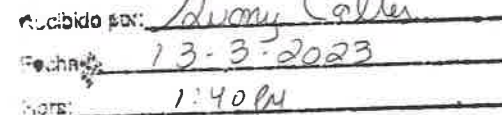 Recibido por:
Fecha: 13-3-2023
Hora: 1:40 PM